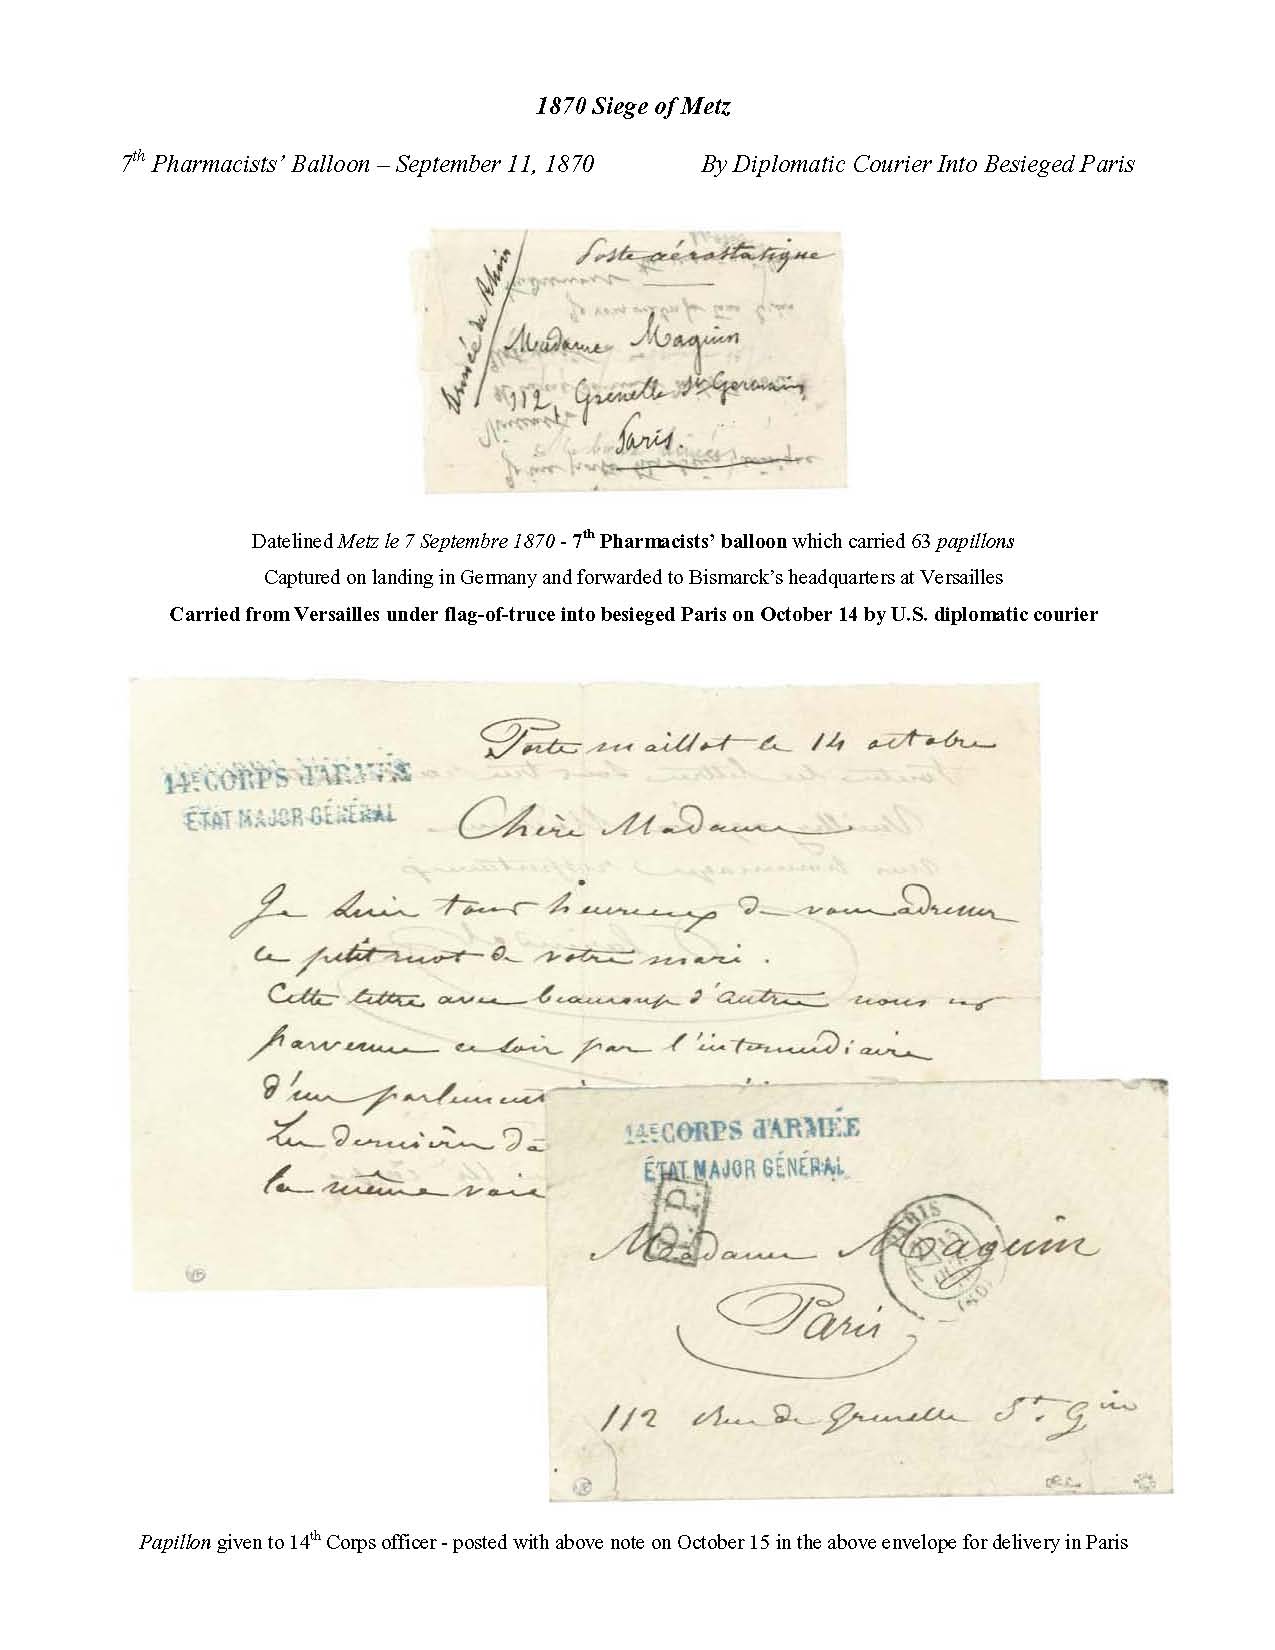 1870 Siege of Metz
7th Pharmacists' Balloon – September 11, 1870 By Diplomatic Courier Into Besieged Paris
Poste aérostatique
Armée du Rhin
Madame Maguin
112, Grenelle St Germain
Paris.
Datelined Metz le 7 Septembre 1870 - 7th Pharmacists' balloon which carried 63 papillons
Captured on landing in Germany and forwarded to Bismarck's headquarters at Versailles
Carried from Versailles under flag-of-truce into besieged Paris on October 14 by U.S. diplomatic courier
Porte maillot le 14 octobre
14E CORPS d'ARMÉE
ÉTAT MAJOR GÉNÉRAL
Chère Madame
Je suis tout heureux de vous adresser
ce petit mot de votre mari.
Cette lettre avec beaucoup d'autres nous est
parvenue ce soir par l'intermédiaire
d'un parlement
la même voie
14E CORPS d'ARMÉE
ÉTAT MAJOR GÉNÉRAL
P.P.
PARIS
Madame Maguin
Paris
112 Rue de Grenelle St. Gin
Papillon given to 14th Corps officer - posted with above note on October 15 in the above envelope for delivery in Paris